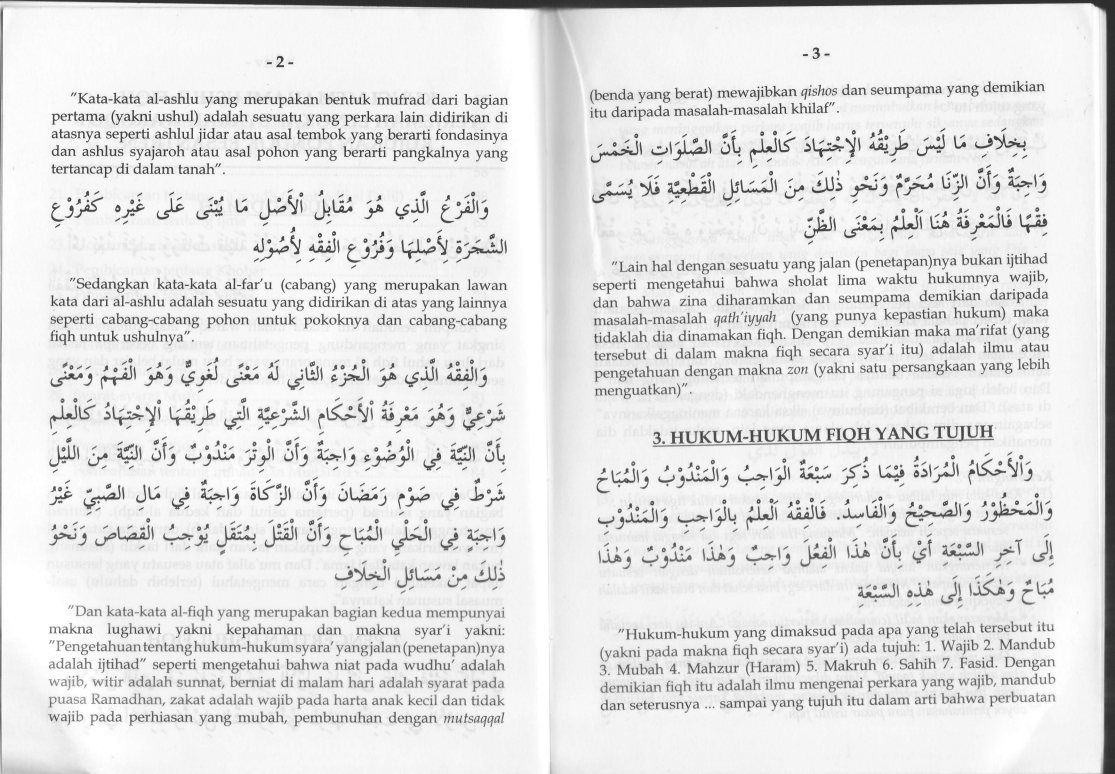 - 2 -
"Kata-kata al-ashlu yang merupakan bentuk mufrad dari bagian
pertama (yakni ushul) adalah sesuatu yang perkara lain didirikan di
atasnya seperti ashlul jidar atau asal tembok yang berarti fondasinya
dan ashlus syajaroh atau asal pohon yang berarti pangkalnya yang
tertancap di dalam tanah".
وَالْفَرْعُ الَّذِي هُوَ مُقَابِلُ الْأَصْلِ مَا يُبْنَى عَلَى غَيْرِهِ كَفُرُوْعِ
الشَّجَرَةِ لِأَصْلِهَا وَفُرُوْعِ الْفِقْهِ لِأُصُوْلِهِ
"Sedangkan kata-kata al-far'u (cabang) yang merupakan lawan
kata dari al-ashlu adalah sesuatu yang didirikan di atas yang lainnya
seperti cabang-cabang pohon untuk pokoknya dan cabang-cabang
fiqh untuk ushulnya".
وَالْفِقْهُ الَّذِي هُوَ الْجُزْءُ الثَّانِي لَهُ مَعْنًى لُغَوِيٌّ وَهُوَ الْفَهْمُ وَمَعْنًى
شَرْعِيٌّ وَهُوَ مَعْرِفَةُ الْأَحْكَامِ الشَّرْعِيَّةِ الَّتِي طَرِيْقُهَا الْإِجْتِهَادُ كَالْعِلْمِ
بِأَنَّ النِّيَّةَ فِي الْوُضُوْءِ وَاجِبَةٌ وَأَنَّ الْوِتْرَ مَنْدُوْبٌ وَأَنَّ النِّيَّةَ مِنَ اللَّيْلِ
شَرْطٌ فِي صَوْمِ رَمَضَانَ وَأَنَّ الزَّكَاةَ وَاجِبَةٌ فِي مَالِ الصَّبِيِّ غَيْرُ
وَاجِبَةٍ فِي الْحَلْيِ الْمُبَاحِ وَأَنَّ الْقَتْلَ بِمُثَقَّلٍ يُوْجِبُ الْقِصَاصَ وَنَحْوُ
ذٰلِكَ مِنْ مَسَائِلِ الْخِلَافِ
"Dan kata-kata al-fiqh yang merupakan bagian kedua mempunyai
makna lughawi yakni kepahaman dan makna syar'i yakni:
"Pengetahuan tentang hukum-hukum syara' yang jalan (penetapan)nya
adalah ijtihad" seperti mengetahui bahwa niat pada wudhu' adalah
wajib, witir adalah sunnat, berniat di malam hari adalah syarat pada
puasa Ramadhan, zakat adalah wajib pada harta anak kecil dan tidak
wajib pada perhiasan yang mubah, pembunuhan dengan mutsaqqal
- 3 -
(benda yang berat) mewajibkan qishos dan seumpama yang demikian
itu daripada masalah-masalah khilaf".
بِخِلَافِ مَا لَيْسَ طَرِيْقُهُ الْإِجْتِهَادُ كَالْعِلْمِ بِأَنَّ الصَّلَوَاتِ الْخَمْسَ
وَاجِبَةٌ وَأَنَّ الزِّنَا مُحَرَّمٌ وَنَحْوِ ذٰلِكَ مِنَ الْمَسَائِلِ الْقَطْعِيَّةِ فَلَا يُسَمَّى
فِقْهًا فَالْمَعْرِفَةُ هُنَا الْعِلْمُ بِمَعْنَى الظَّنِّ
"Lain hal dengan sesuatu yang jalan (penetapan)nya bukan ijtihad
seperti mengetahui bahwa sholat lima waktu hukumnya wajib,
dan bahwa zina diharamkan dan seumpama demikian daripada
masalah-masalah qath'iyyah (yang punya kepastian hukum) maka
tidaklah dia dinamakan fiqh. Dengan demikian maka ma'rifat (yang
tersebut di dalam makna fiqh secara syar'i itu) adalah ilmu atau
pengetahuan dengan makna zon (yakni satu persangkaan yang lebih
menguatkan)".
3. HUKUM-HUKUM FIQH YANG TUJUH
وَالْأَحْكَامُ الْمُرَادَةُ فِيْمَا ذُكِرَ سَبْعَةٌ الْوَاجِبُ وَالْمَنْدُوْبُ وَالْمُبَاحُ
وَالْمَحْظُوْرُ وَالصَّحِيْحُ وَالْفَاسِدُ. فَالْفِقْهُ الْعِلْمُ بِالْوَاجِبِ وَالْمَنْدُوْبِ
إِلَى آخِرِ السَّبْعَةِ أَيْ بِأَنَّ هٰذَا الْفِعْلَ وَاجِبٌ وَهٰذَا مَنْدُوْبٌ وَهٰذَا
مُبَاحٌ وَهٰكَذَا إِلَى هٰذِهِ السَّبْعَةِ
"Hukum-hukum yang dimaksud pada apa yang telah tersebut itu
(yakni pada makna fiqh secara syar'i) ada tujuh: 1. Wajib 2. Mandub
3. Mubah 4. Mahzur (Haram) 5. Makruh 6. Sahih 7. Fasid. Dengan
demikian fiqh itu adalah ilmu mengenai perkara yang wajib, mandub
dan seterusnya ... sampai yang tujuh itu dalam arti bahwa perbuatan